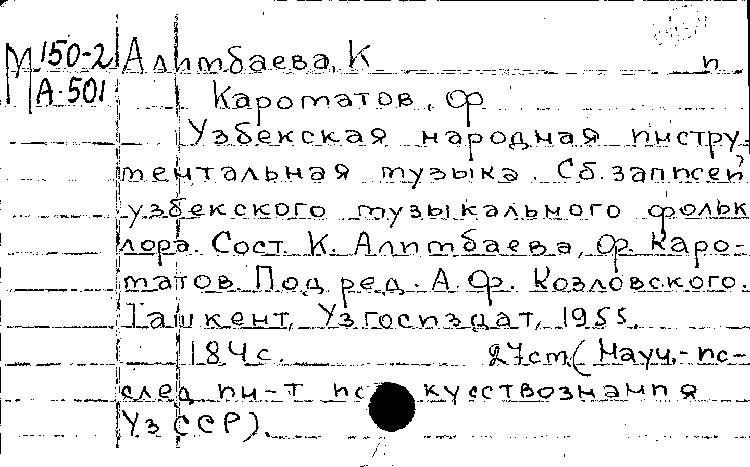 М 150-2 Алимбаева, К и
А-501 Кароматов, Ф
Узбекская народная инстру-
ментальная музыка. Сб. записей
узбекского музыкального фольк
лора. Сост. К. Алимбаева, Ф. Каро-
матов. Под ред. А.Ф. Козловского.
Ташкент, Узгосиздат, 1955.
184 с. 27 cm. (Науч.-ис-
след ин-т искусствознания
УзССР).